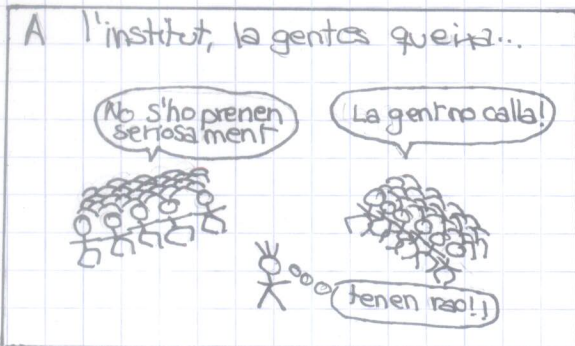 A l'institut, la gentes queixa...
No s'ho prenen
seriosament
La gent no calla!
tenen rao!